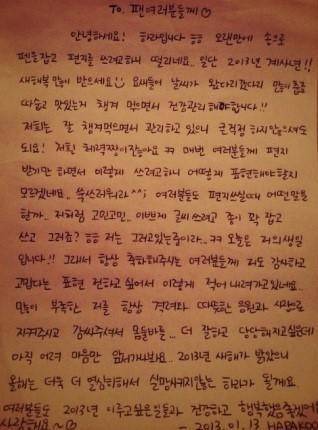 To. 팬여러분들께♡
안녕하세요! 하라입니다 ㅎㅎ 오랜만에 손으로
펜을잡고 편지를 쓰려고하니 떨리네요. 일단 2013년 계사년!!
새해복 많이 받으세요~! 요새들어 날씨가 왔다리갔다리 많이 춥죠
따습고 맛있는거 챙겨 먹으면서 건강관리해야합니다.!!
저희는 잘 챙겨먹으면서 관리하고 있으니 큰걱정 하지않으셔도
되요! 저흰 체력짱이잖아요 ㅋㅋ 매번 여러분들께 편지
받기만 하면서 이렇게 쓰려고하니 어떻게 표현해야할지
모르겠네요.. 쑥스러워라^^; 여러분들도 편지쓰실때 어떤말을
할까.. 저처럼 고민고민.. 이쁘게 글씨 쓰려고 종이 꽉 잡고
쓰고 그러죠? ㅎㅎ 저는 그러고있는중이라.. ㅋㅋ 오늘은 저의생일
입니다.!! 그래서 항상 축하해주시는 여러분들께 저도 감사하고
고맙다는 표현 전하고 싶어서 이렇게 적어 내려가고있네요.
많이 부족한 저를 항상 격려와 따뜻한 응원과 사랑으로
지켜주시고 감싸주셔서 몸둘바를... 더 잘하고 당당해지고싶은데
아직 여려 마음만 앞서가나봐요.. 2013년 새해가 밝았으니
올해는 더욱 더 열심히해서 실망시키지않는 하라가 될게요.
여러분들도 2013년 이루고싶은일들과 건강하고 행복했음좋겠어요
사랑해요~♡ - 2013. 01. 13 HARAKOO